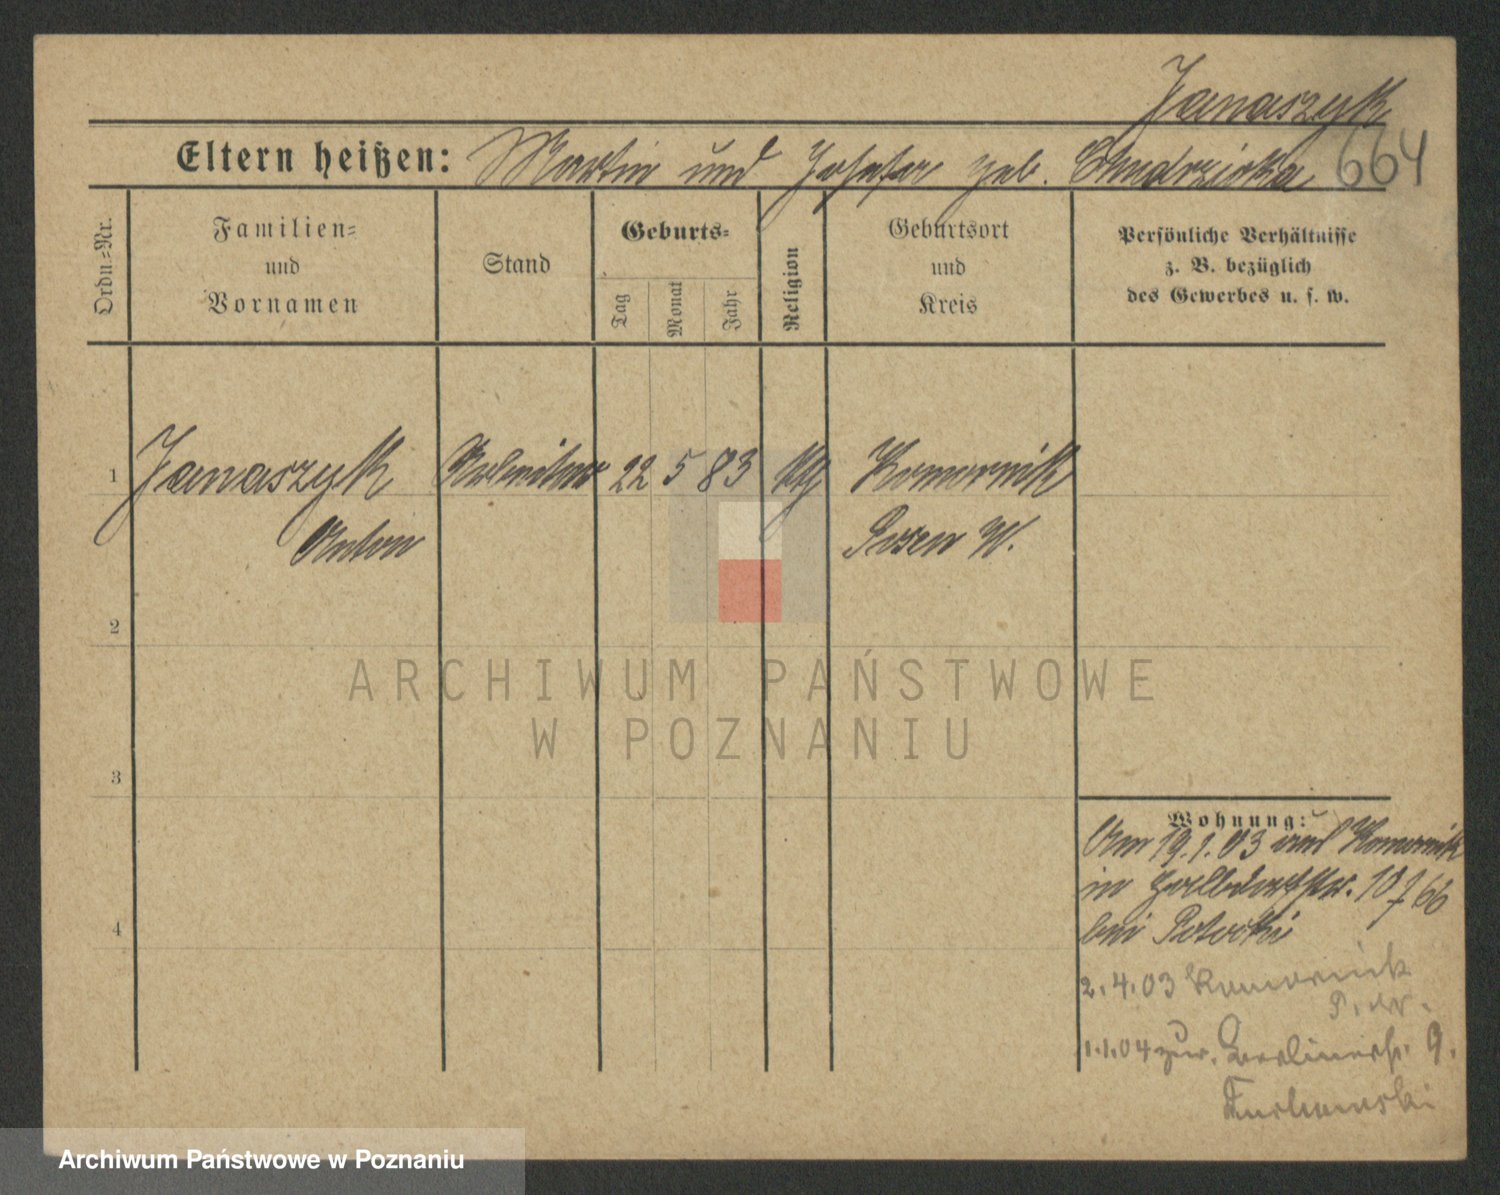 Janaszyk
Eltern heißen: Martin und Josefa geb. 664
Ordn.=Nr.
Familien=
und
Vornamen
Stand
Geburts=
Tag
Monat
Jahr
Religion
Geburtsort
und
Kreis
Persönliche Verhältnisse
z. B. bezüglich
des Gewerbes u. s. w.
1 Janaszyk Arbeiter 22 5 83 ktg Komornik
Anton Posen W.
2
3
4
Wohnung:
Am 19.1.03 aus Komornik
in 10
bei Potocki
2.4.03 Komornik
P. W.
1.1.04 zur. Berlinerstr. 9.
ARCHIWUM PAŃSTWOWE
W POZNANIU
Archiwum Państwowe w Poznaniu